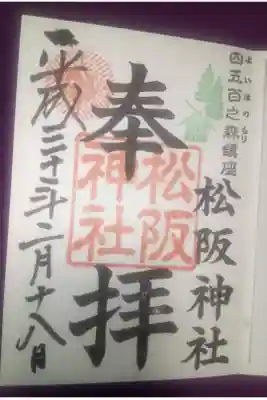 よいほのもり
四五百之森鎮座
松阪神社
奉拝
松阪
神社
平成三十年二月十八日